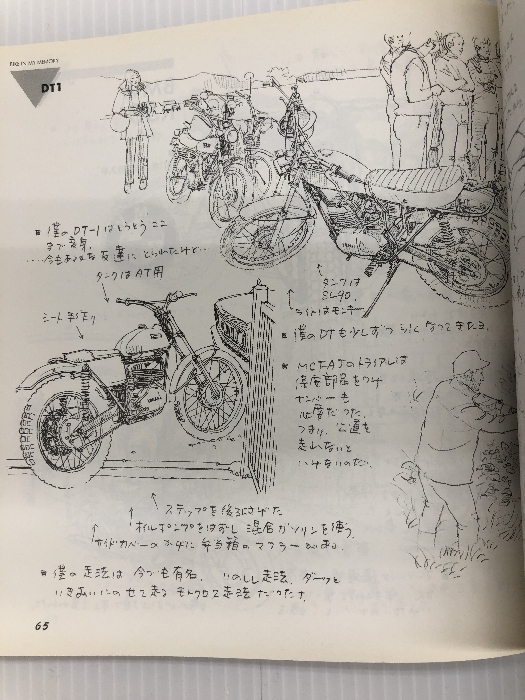 BIKE IN MY MEMORY
DT1
■ 僕のDT-1はとうとうここ
まで変身。
タンクはAT用
シート手作り
タンクは
SL90.
ライトはモンキー
■ 僕のDTも少しずつ
なってきたヨ.
■ MCFAJのトライアルは
保安部品をつけ
ナンバーも
必要だった.
つまり、公道を
走れないと
いけないのだ.
ステップを後ろにさげた
オイルポンプをはずし 混合ガソリンを使う.
サイドカバーの 弁当箱のマフラーがある.
■ 僕の走法は 今でも有名. いのしし走法. ダーッと
いきおいにのせて走る モトクロス走法だった
65